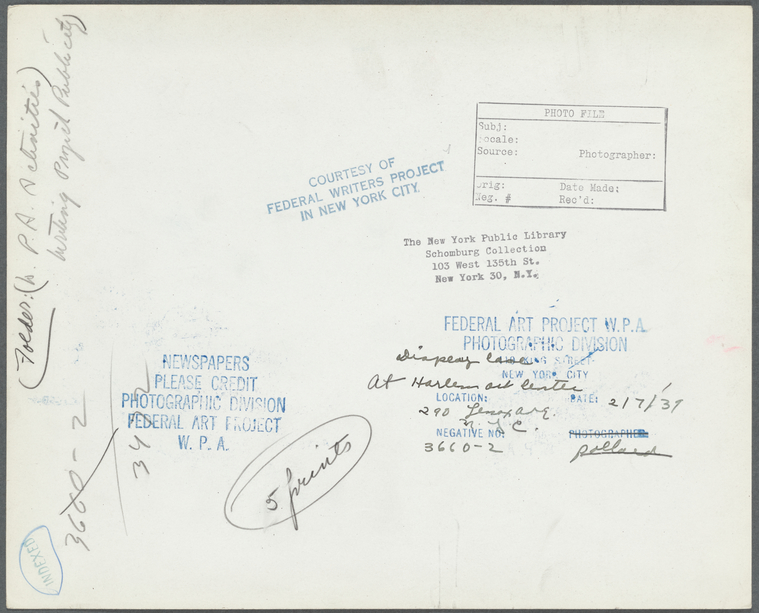 (Folder: (W. P. A. Activities)
Writing Project Publicity)
PHOTO FILE
Subj:
ocale:
Source:
Photographer:
rig:
Date Made:
Neg. #
Rec'd:
COURTESY OF
FEDERAL WRITERS PROJECT
IN NEW YORK CITY.
The New York Public Library
Schomburg Collection
103 West 135th St.
New York 30, N.Y.
FEDERAL ART PROJECT W.P.A.
PHOTOGRAPHIC DIVISION
KING STREET
NEW YORK CITY
Display Case
At Harlem Art Center
LOCATION:
DATE: 2/7/39
290 Lenox Ave.
N.Y.C.
NEGATIVE NO:
PHOTOGRAPHER
3660-2
Pollard
NEWSPAPERS
PLEASE CREDIT
PHOTOGRAPHIC DIVISION
FEDERAL ART PROJECT
W. P. A.
5 prints
3660-2
INDEXED